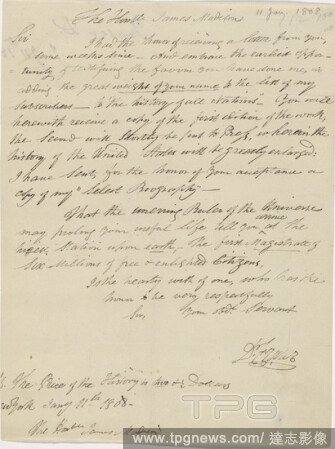 The Honble James Madison
11 Jany 1808
Sir
I had the honor of receiving a letter from you
some weeks since. And embrace the earliest oppor-
tunity of acknowledging the favour you have done me, in
adding the great weight of your name to the list of my
subscribers — to the "history of all Nations" You will
herewith receive a copy of the first edition of the work,
the second will shortly be put to Press, wherein the
history of the United States will be greatly enlarged.
I have sent, for the honor of your acceptance a
copy of my "Select Biography"
That the unerring Ruler of the Universe
may prolong your useful life, till you arrive at the
highest station upon earth, The first Magistrate of
Six Millions of free & enlightened Citizens,
Is the hearty wish of one, who has the
honor to be very respectfully
Sir, Your Obt Servant
The Price of the History is two Dollars
New York Jany 11th 1808.
The Honble James Madison
TPG
www.tpgnews.com / 達志影像